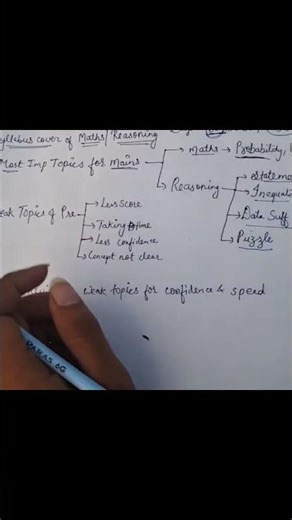 yllabus cover of Maths/Reasoning
Most Imp Topics for Mains → Maths → Probability,
Reasoning → Statemen
→ Inequali
→ Data Suff
→ Puzzle
eak Topics of Pre → Less Score
→ Taking time
→ Less confidence
→ Concept not clear
weak topics for confidence & speed